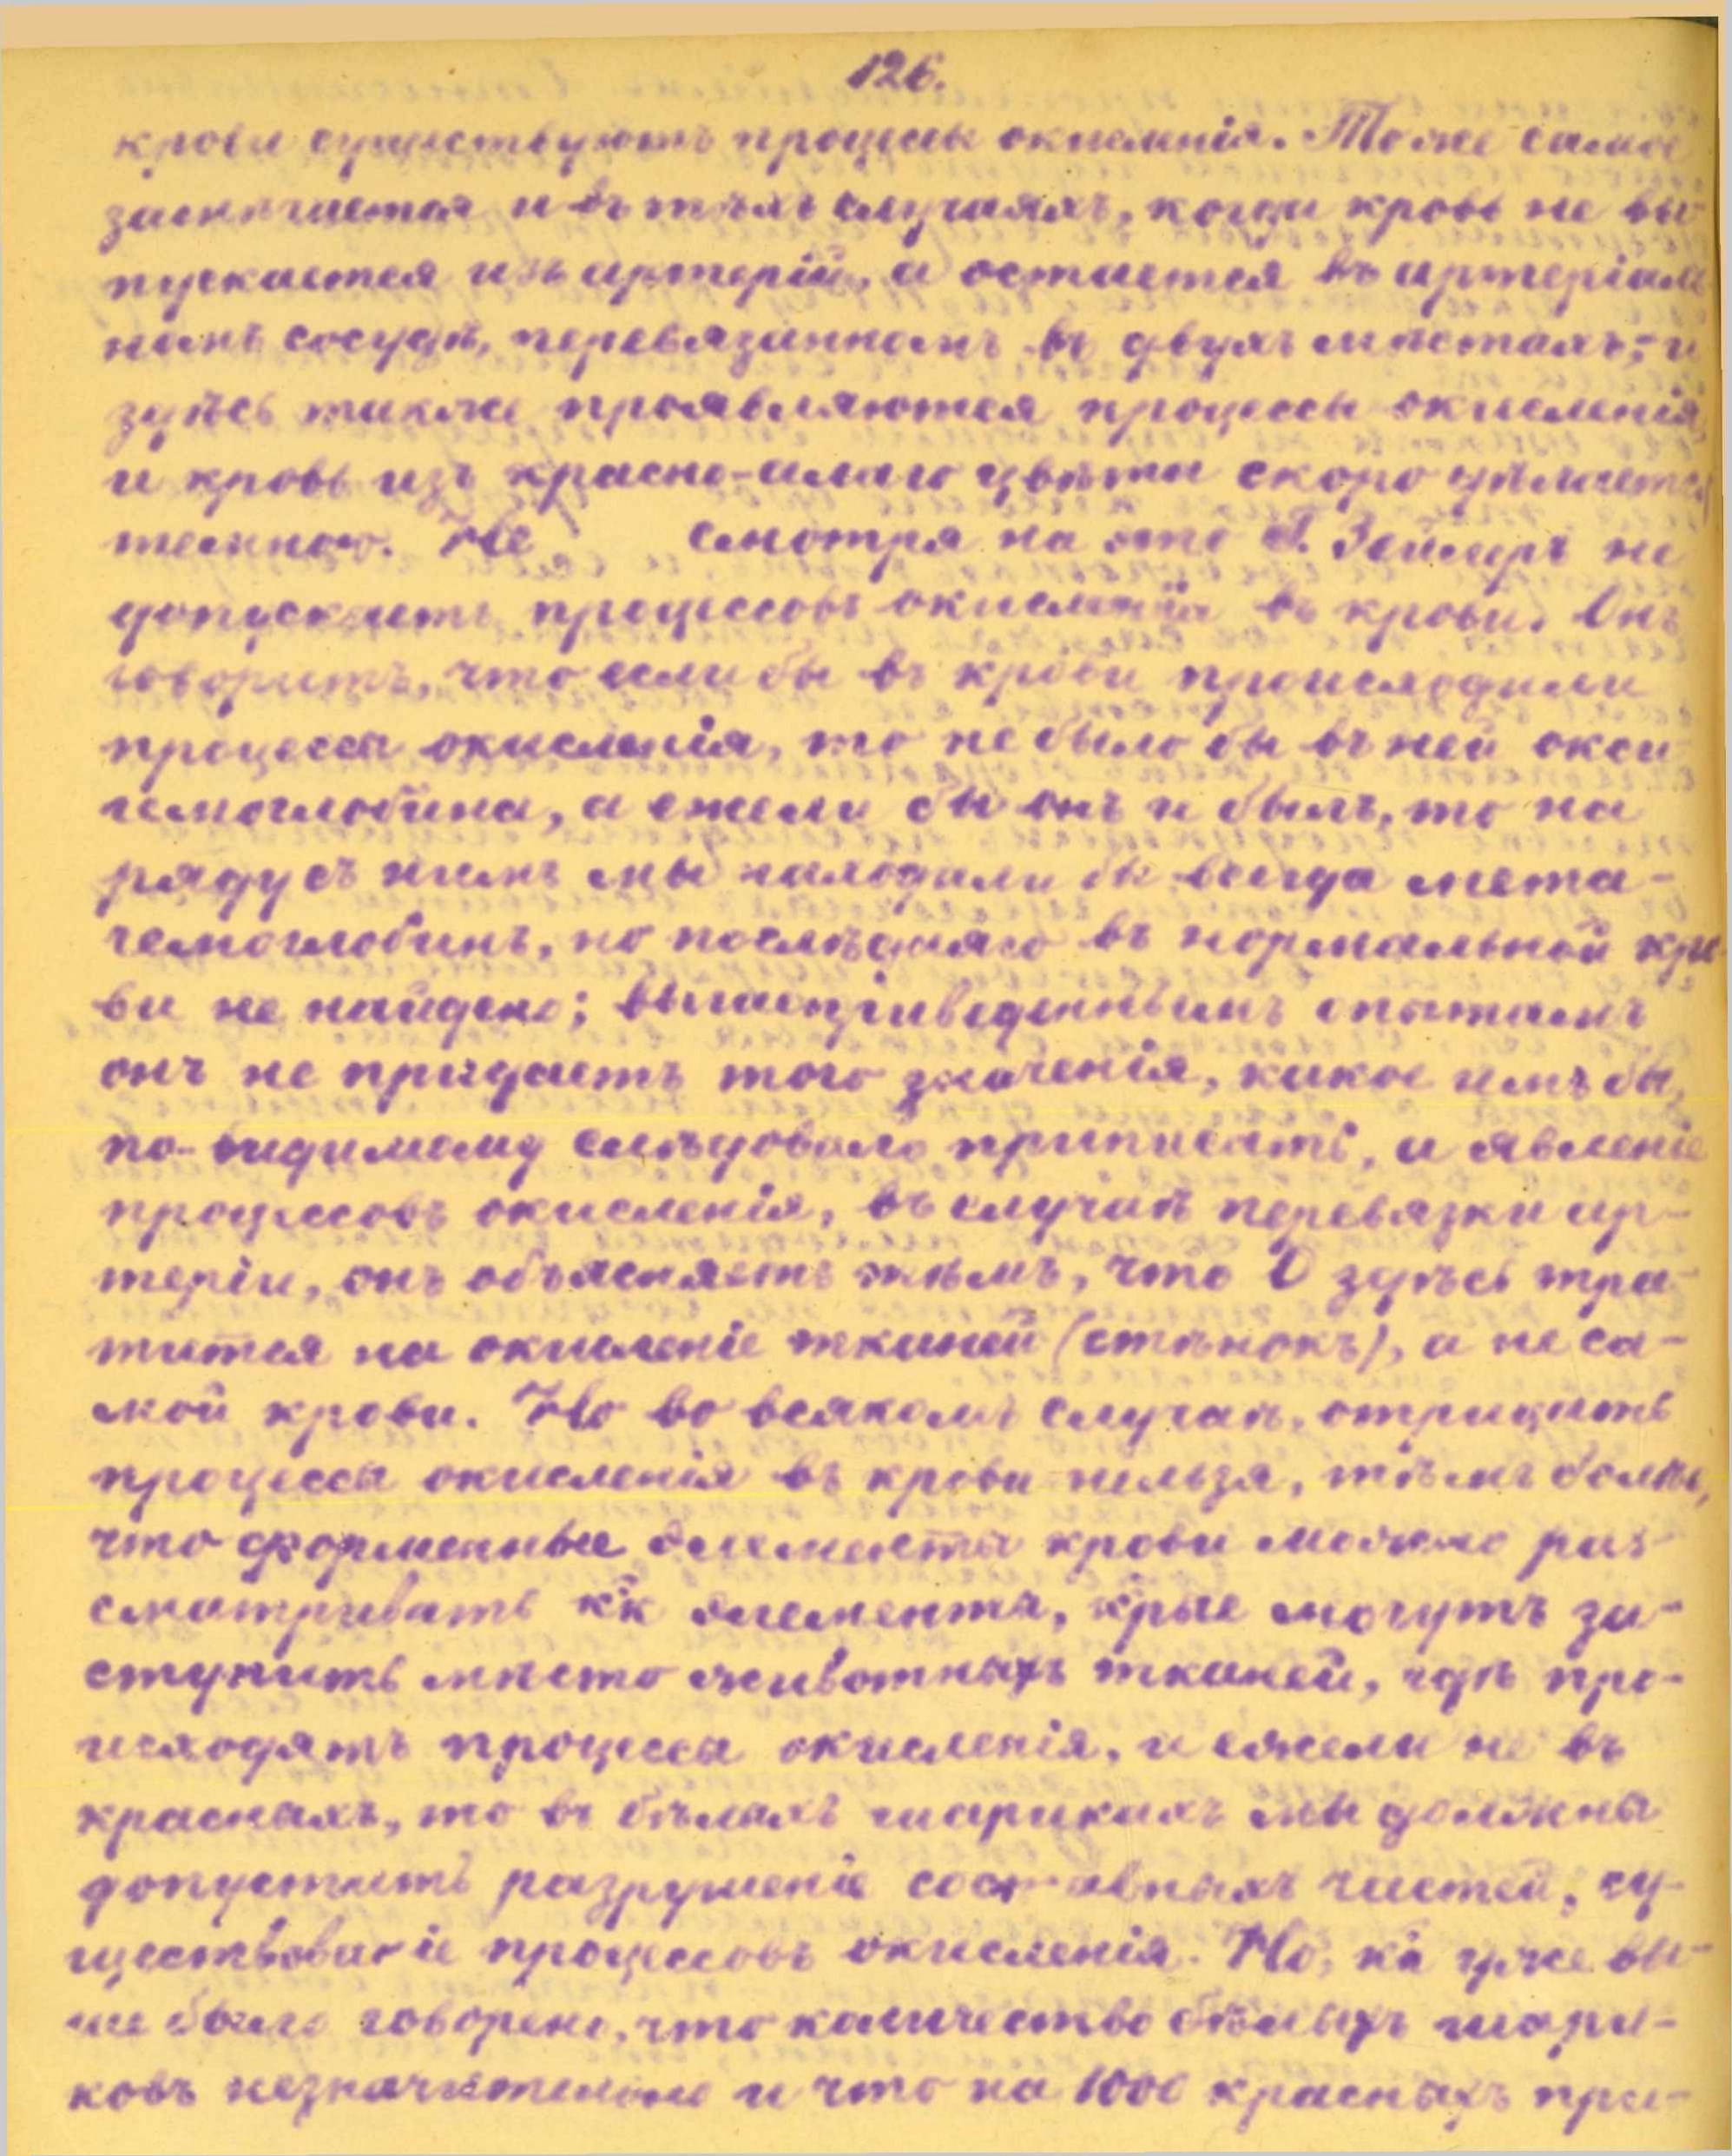 126.
крови существуютъ процесы окисленія. Тоже самое
замѣчается и въ тѣхъ случаяхъ, когда кровь не вы-
пускается изъ артерій, а остается въ артеріаль
номъ сосудѣ, перевязанномъ въ двухъ мѣстахъ; - и
здѣсь также проявляются процессы окисленія,
и кровь изъ красно-алаго цвѣта скоро дѣлается
темною. Не смотря на это Г. Зейлеръ не
допускаетъ процессовъ окисленія въ крови. Онъ
говоритъ, что если бы въ крови происходили
процессы окисленія, то не было бы въ ней окси
гемоглобина, а ежели бы онъ и былъ, то на
ряду съ нимъ мы находили бы всегда мета-
гемоглобинъ, но послѣдняго въ нормальной кро-
ви не найдено; вышеприведеннымъ опытамъ
онъ не придаетъ того значенія, какое имъ бы,
по-видимому слѣдовало приписать, а явленіе
процессовъ окисленія, въ случаѣ перевязки ар-
теріи, онъ объясняетъ тѣмъ, что O здѣсь тра-
тится на окисленіе тканей (стѣнокъ), а не са-
мой крови. Но во всякомъ случаѣ, отрицать
процессы окисленія въ крови нельзя, тѣмъ болѣе,
что форменные элементы крови можно раз-
сматривать кк элементы, крые могутъ за-
ступить мѣсто животныхъ тканей, гдѣ про-
исходятъ процессы окисленія, и ежели не въ
красныхъ, то въ бѣлыхъ шарикахъ мы должны
допустить разрушеніе составныхъ частей, су-
ществованіе процессовъ окисленія. Но, кк уже вы-
ше было говорено, что количество бѣлыхъ шари-
ковъ незначительно и что на 1000 красныхъ при-